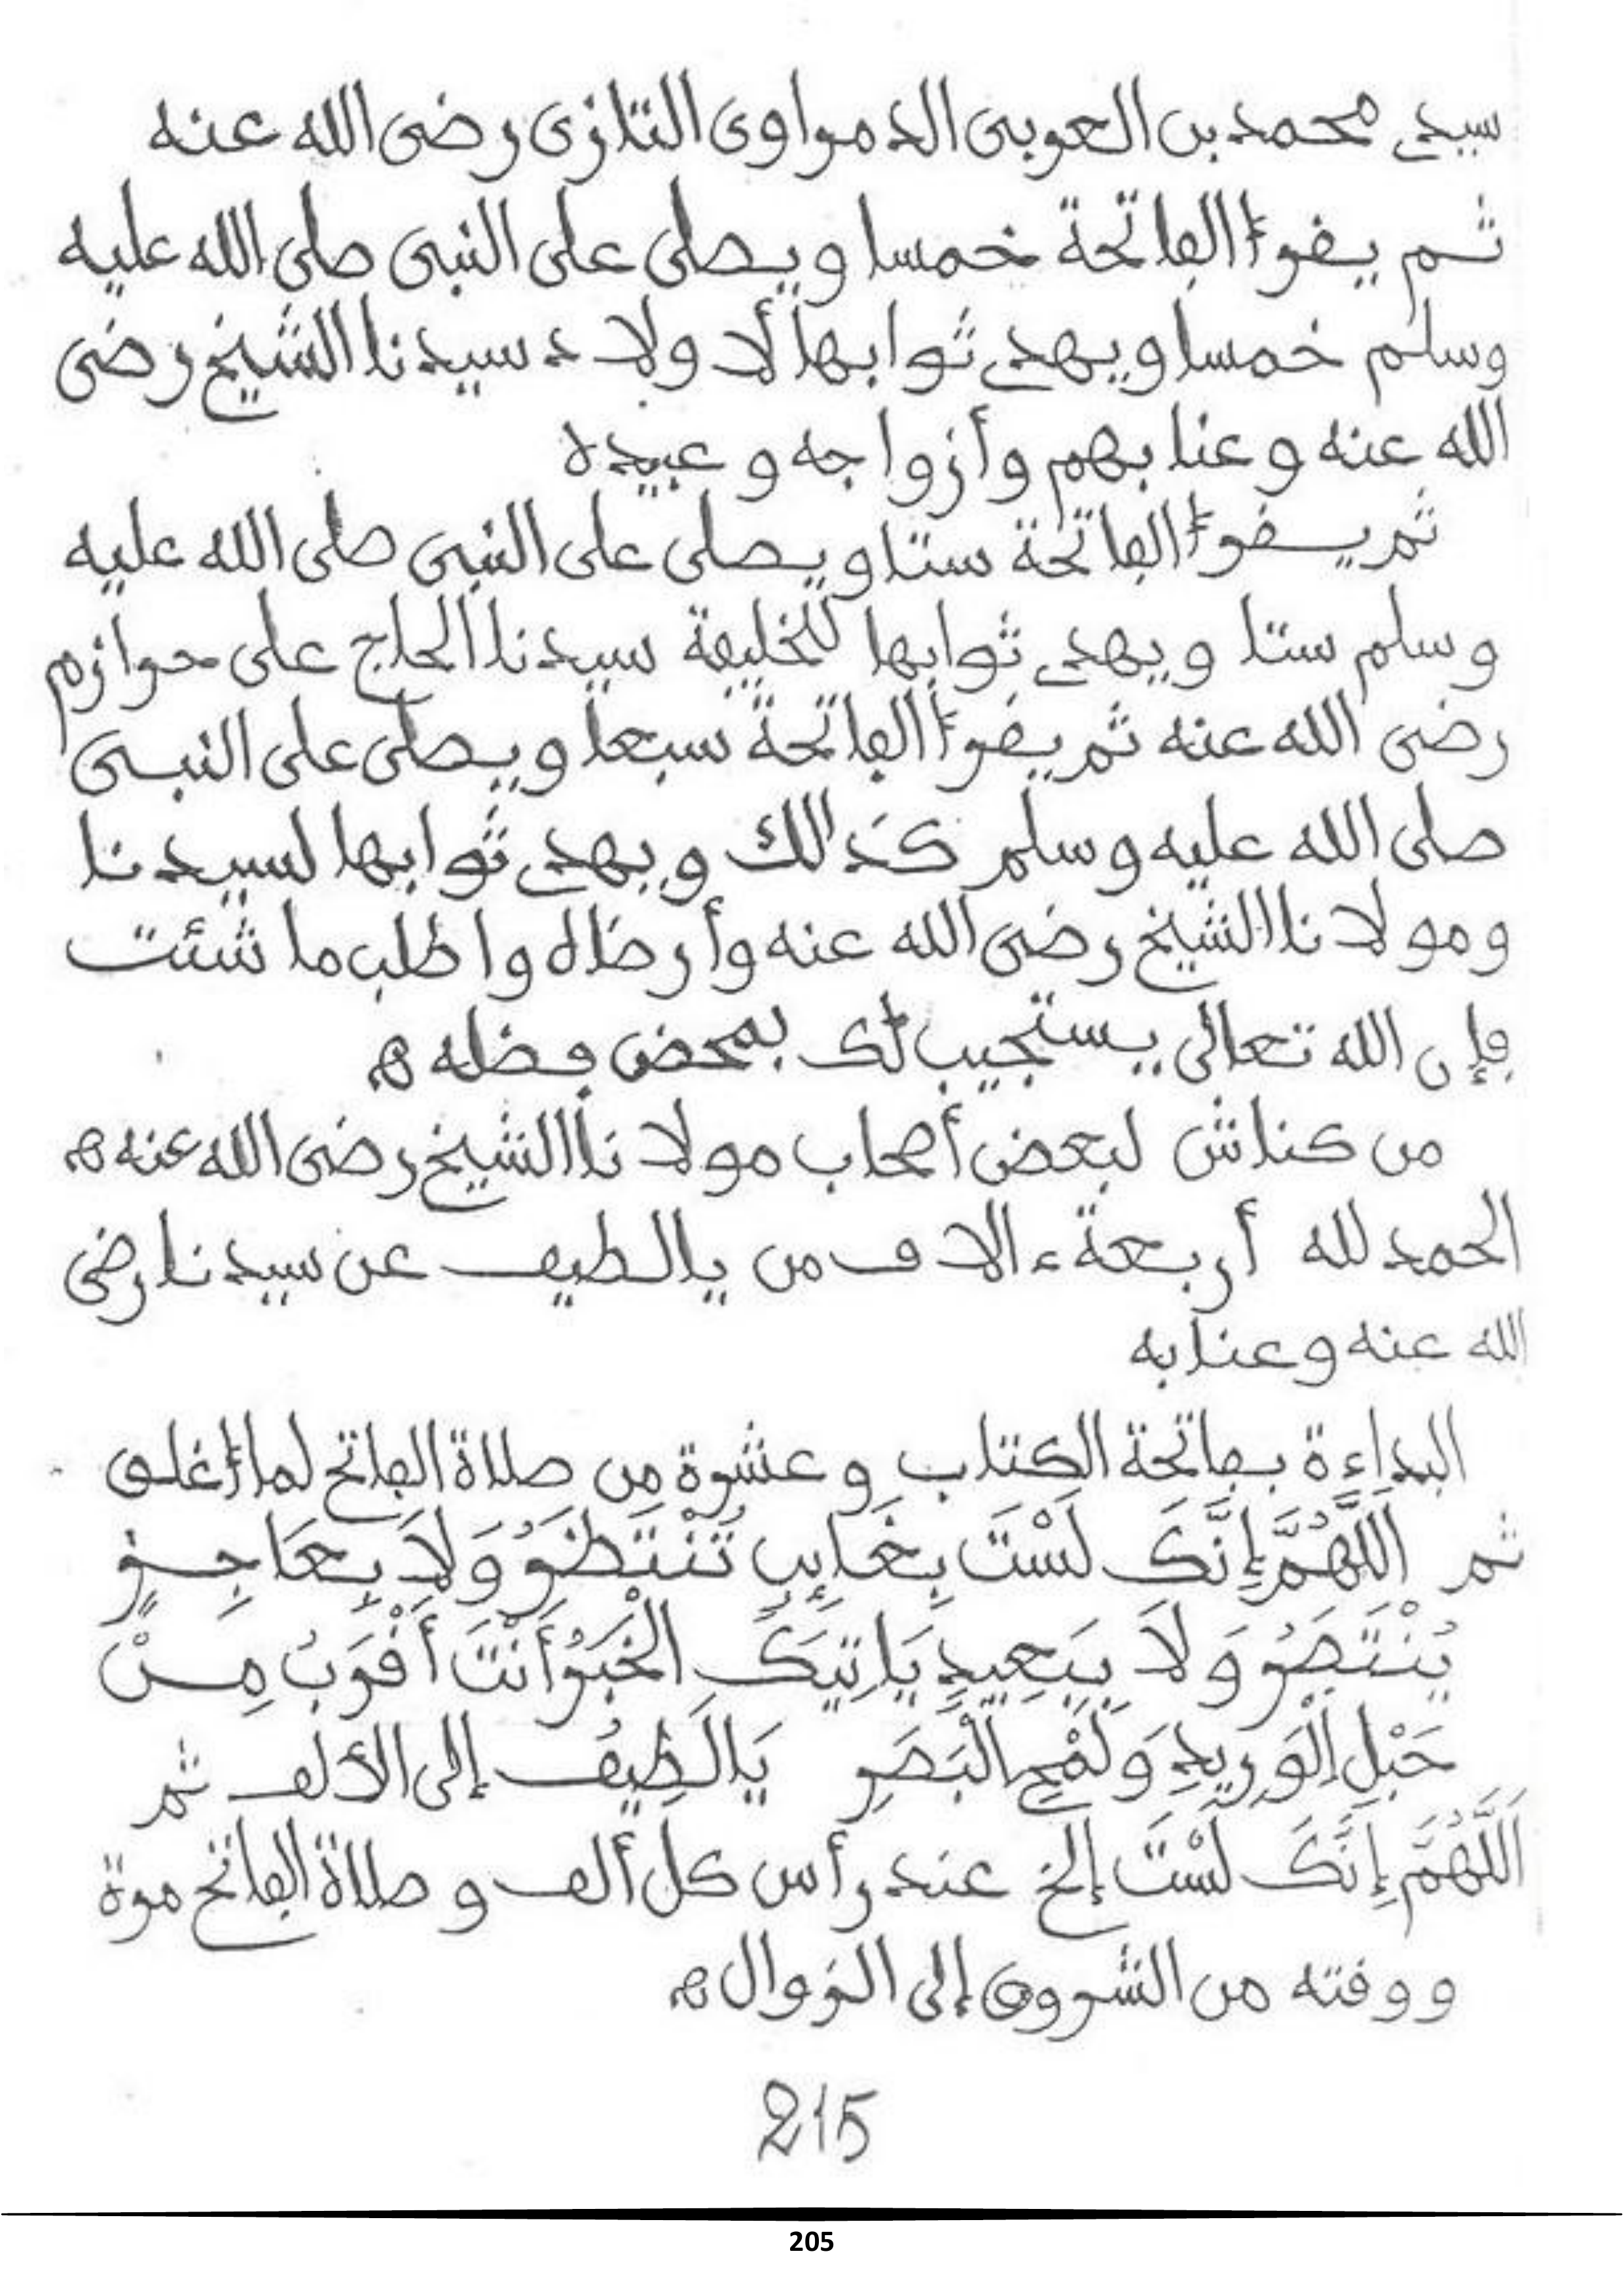 سيدي محمد بن العربى الدمراوى التازى رضى الله عنه
ثم يقرأ الفاتحة خمسا ويصلى على النبى صلى الله عليه
وسلم خمسا ويهدي ثوابها لأولاد سيدنا الشيخ رضى
الله عنه وعنا بهم وأزواجه وعبيده
ثم يقرأ الفاتحة ستا ويصلى على النبى صلى الله عليه
وسلم ستا ويهدي ثوابها للخليفة سيدنا الحاج على حرازم
رضى الله عنه ثم يقرأ الفاتحة سبعا ويصلى على النبى
صلى الله عليه وسلم كذالك ويهدي ثوابها لسيدنا
ومولانا الشيخ رضى الله عنه وأرضاه واطلب ما شئت
فإن الله تعالى يستجيب لك بمحض فضله ه
من كناش لبعض أصحاب مولانا الشيخ رضى الله عنه ه
الحمد لله أربعة ءالاف من يا لطيف عن سيدنا رضى
الله عنه وعنا به
البداءة بفاتحة الكتاب وعشرة من صلاة الفاتح لما أغلق
ثم اَللَّهُمَّ إِنَّكَ لَسْتَ بِغَائِبٍ تُنْتَظَرُ وَلاَ بِعَاجِزٍ
يُنْتَصَرُ وَلاَ بِبَعِيدٍ يَاتِيكَ الْخَبَرُ أَنْتَ أَقْرَبُ مِنْ
حَبْلِ الْوَرِيدِ وَلَمْحِ الْبَصَرِ يَا لَطِيفُ إلى الألف ثم
اَللَّهُمَّ إِنَّكَ لَسْتَ إلخ عند رأس كل ألف وصلاة الفاتح مرة
ووقته من الشروق إلى الزوال ه
215
205